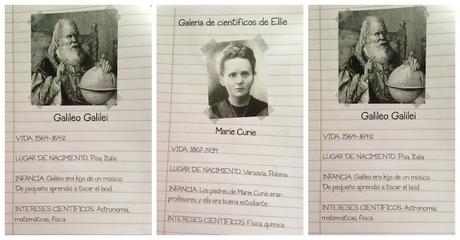 Galileo Galilei
VIDA: 1564-1642
LUGAR DE NACIMIENTO: Pisa, Italia
INFANCIA: Galileo era hijo de un músico.
De pequeño aprendió a tocar el laúd.
INTERESES CIENTÍFICOS: Astronomía,
matemáticas, física
Galería de científicos de Ellie
Marie Curie
VIDA: 1867-1934
LUGAR DE NACIMIENTO: Varsovia, Polonia
INFANCIA: Los padres de Marie Curie eran
profesores, y ella era buena estudiante.
INTERESES CIENTÍFICOS: Física, química
Galileo Galilei
VIDA: 1564-1642
LUGAR DE NACIMIENTO: Pisa, Italia
INFANCIA: Galileo era hijo de un músico.
De pequeño aprendió a tocar el laúd.
INTERESES CIENTÍFICOS: Astronomía,
matemáticas, física